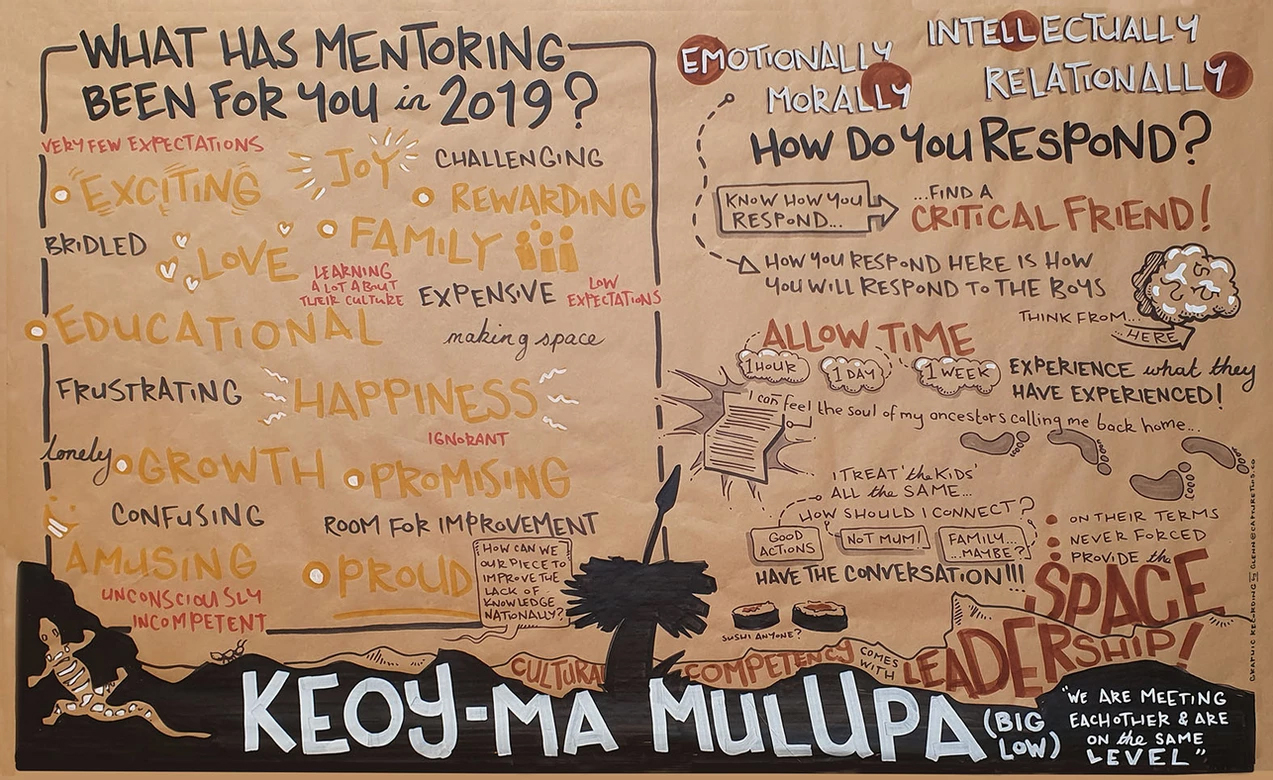 WHAT HAS MENTORING
BEEN FOR YOU in 2019?
VERY FEW EXPECTATIONS
EXCITING
JOY
CHALLENGING
REWARDING
BRIDLED
LOVE
FAMILY
LEARNING
A LOT ABOUT
THEIR CULTURE
EXPENSIVE
LOW
EXPECTATIONS
EDUCATIONAL
making space
FRUSTRATING
HAPPINESS
IGNORANT
lonely
GROWTH
PROMISING
CONFUSING
ROOM FOR IMPROVEMENT
AMUSING
PROUD
HOW CAN WE
OUR PIECE TO
IMPROVE THE
LACK OF
KNOWLEDGE
NATIONALLY?
UNCONSCIOUSLY
INCOMPETENT
EMOTIONALLY
INTELLECTUALLY
MORALLY
RELATIONALLY
HOW DO YOU RESPOND?
KNOW HOW YOU
RESPOND...
...FIND A
CRITICAL FRIEND!
HOW YOU RESPOND HERE IS HOW
YOU WILL RESPOND TO THE BOYS
THINK FROM...
...HERE
ALLOW TIME
1 HOUR
1 DAY
1 WEEK
EXPERIENCE what they
HAVE EXPERIENCED!
I can feel the soul of my ancestors calling me back home...
I TREAT 'the KIDS'
ALL the SAME...
HOW SHOULD I CONNECT?
GOOD
ACTIONS
NOT MUM!
FAMILY...
...MAYBE?
HAVE THE CONVERSATION!!!
ON THEIR TERMS
NEVER FORCED
PROVIDE the
SPACE
SUSHI ANYONE?
CULTURAL COMPETENCY COMES
WITH
LEADERSHIP!
KEOY-MA MULUPA
(BIG
LOW)
"WE ARE MEETING
EACHOTHER & ARE
ON the SAME
LEVEL"
GRAPHIC RECORDING by GLENN@CAPTURETHIS.CO